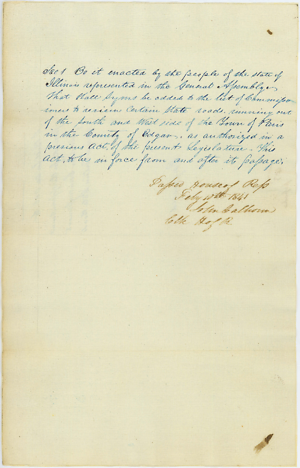 Sec 1 Be it enacted by the people of the state of
Illinois represented in the General Assembly,
That Hall Syms be added to the list of Commission
iners to review Certain State roads running out
of the South and West side of the Town of Paris
in the County of Edgar, as authorized in a
previous Act, of the present Legislature. This
Act, to be in force from and after its passage.
Passed House of Reps
Feby 1841
John Calhoun
Clk H of R